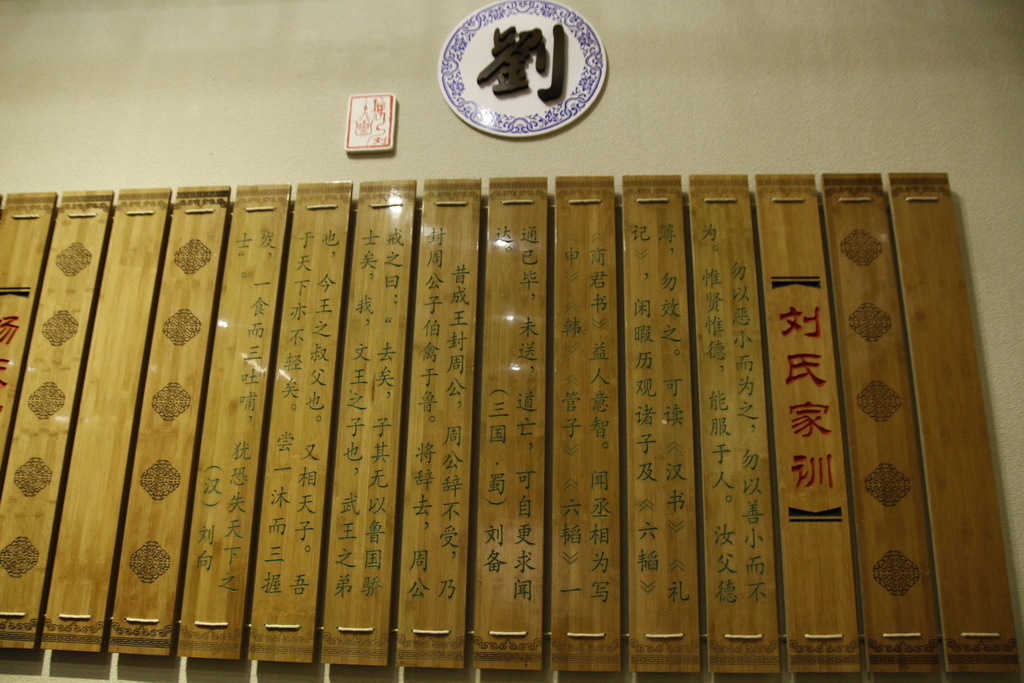 劉
刘氏家训
勿以恶小而为之，勿以善小而不
为。惟贤惟德，能服于人。汝父德
薄，勿效之。可读《汉书》《礼
记》，闲暇历观诸子及《六韬》
《商君书》益人意智。闻丞相为写
《申》《韩》《管子》《六韬》一
通已毕，未送，道亡，可自更求闻
达。（三国·蜀）刘备
昔成王封周公，周公辞不受，乃
封周公子伯禽于鲁。将辞去，周公
戒之曰：“去矣，子其无以鲁国骄
士矣，我，文王之子也，武王之弟
也，今王之叔父也。又相天子。吾
于天下亦不轻矣。尝一沐而三握
发，一食而三吐哺，犹恐失天下之
士”。（汉）刘向
杨